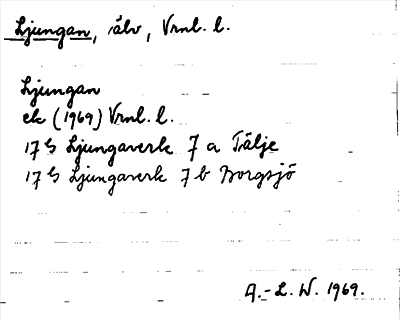 Ljungan, älv, Vrnl. l.
Ljungan
ek (1969) Vrnl. l.
17 G Ljungaverk 7 a Tälje
17 G Ljungaverk 7 b Borgsjö
A.-L. W. 1969.